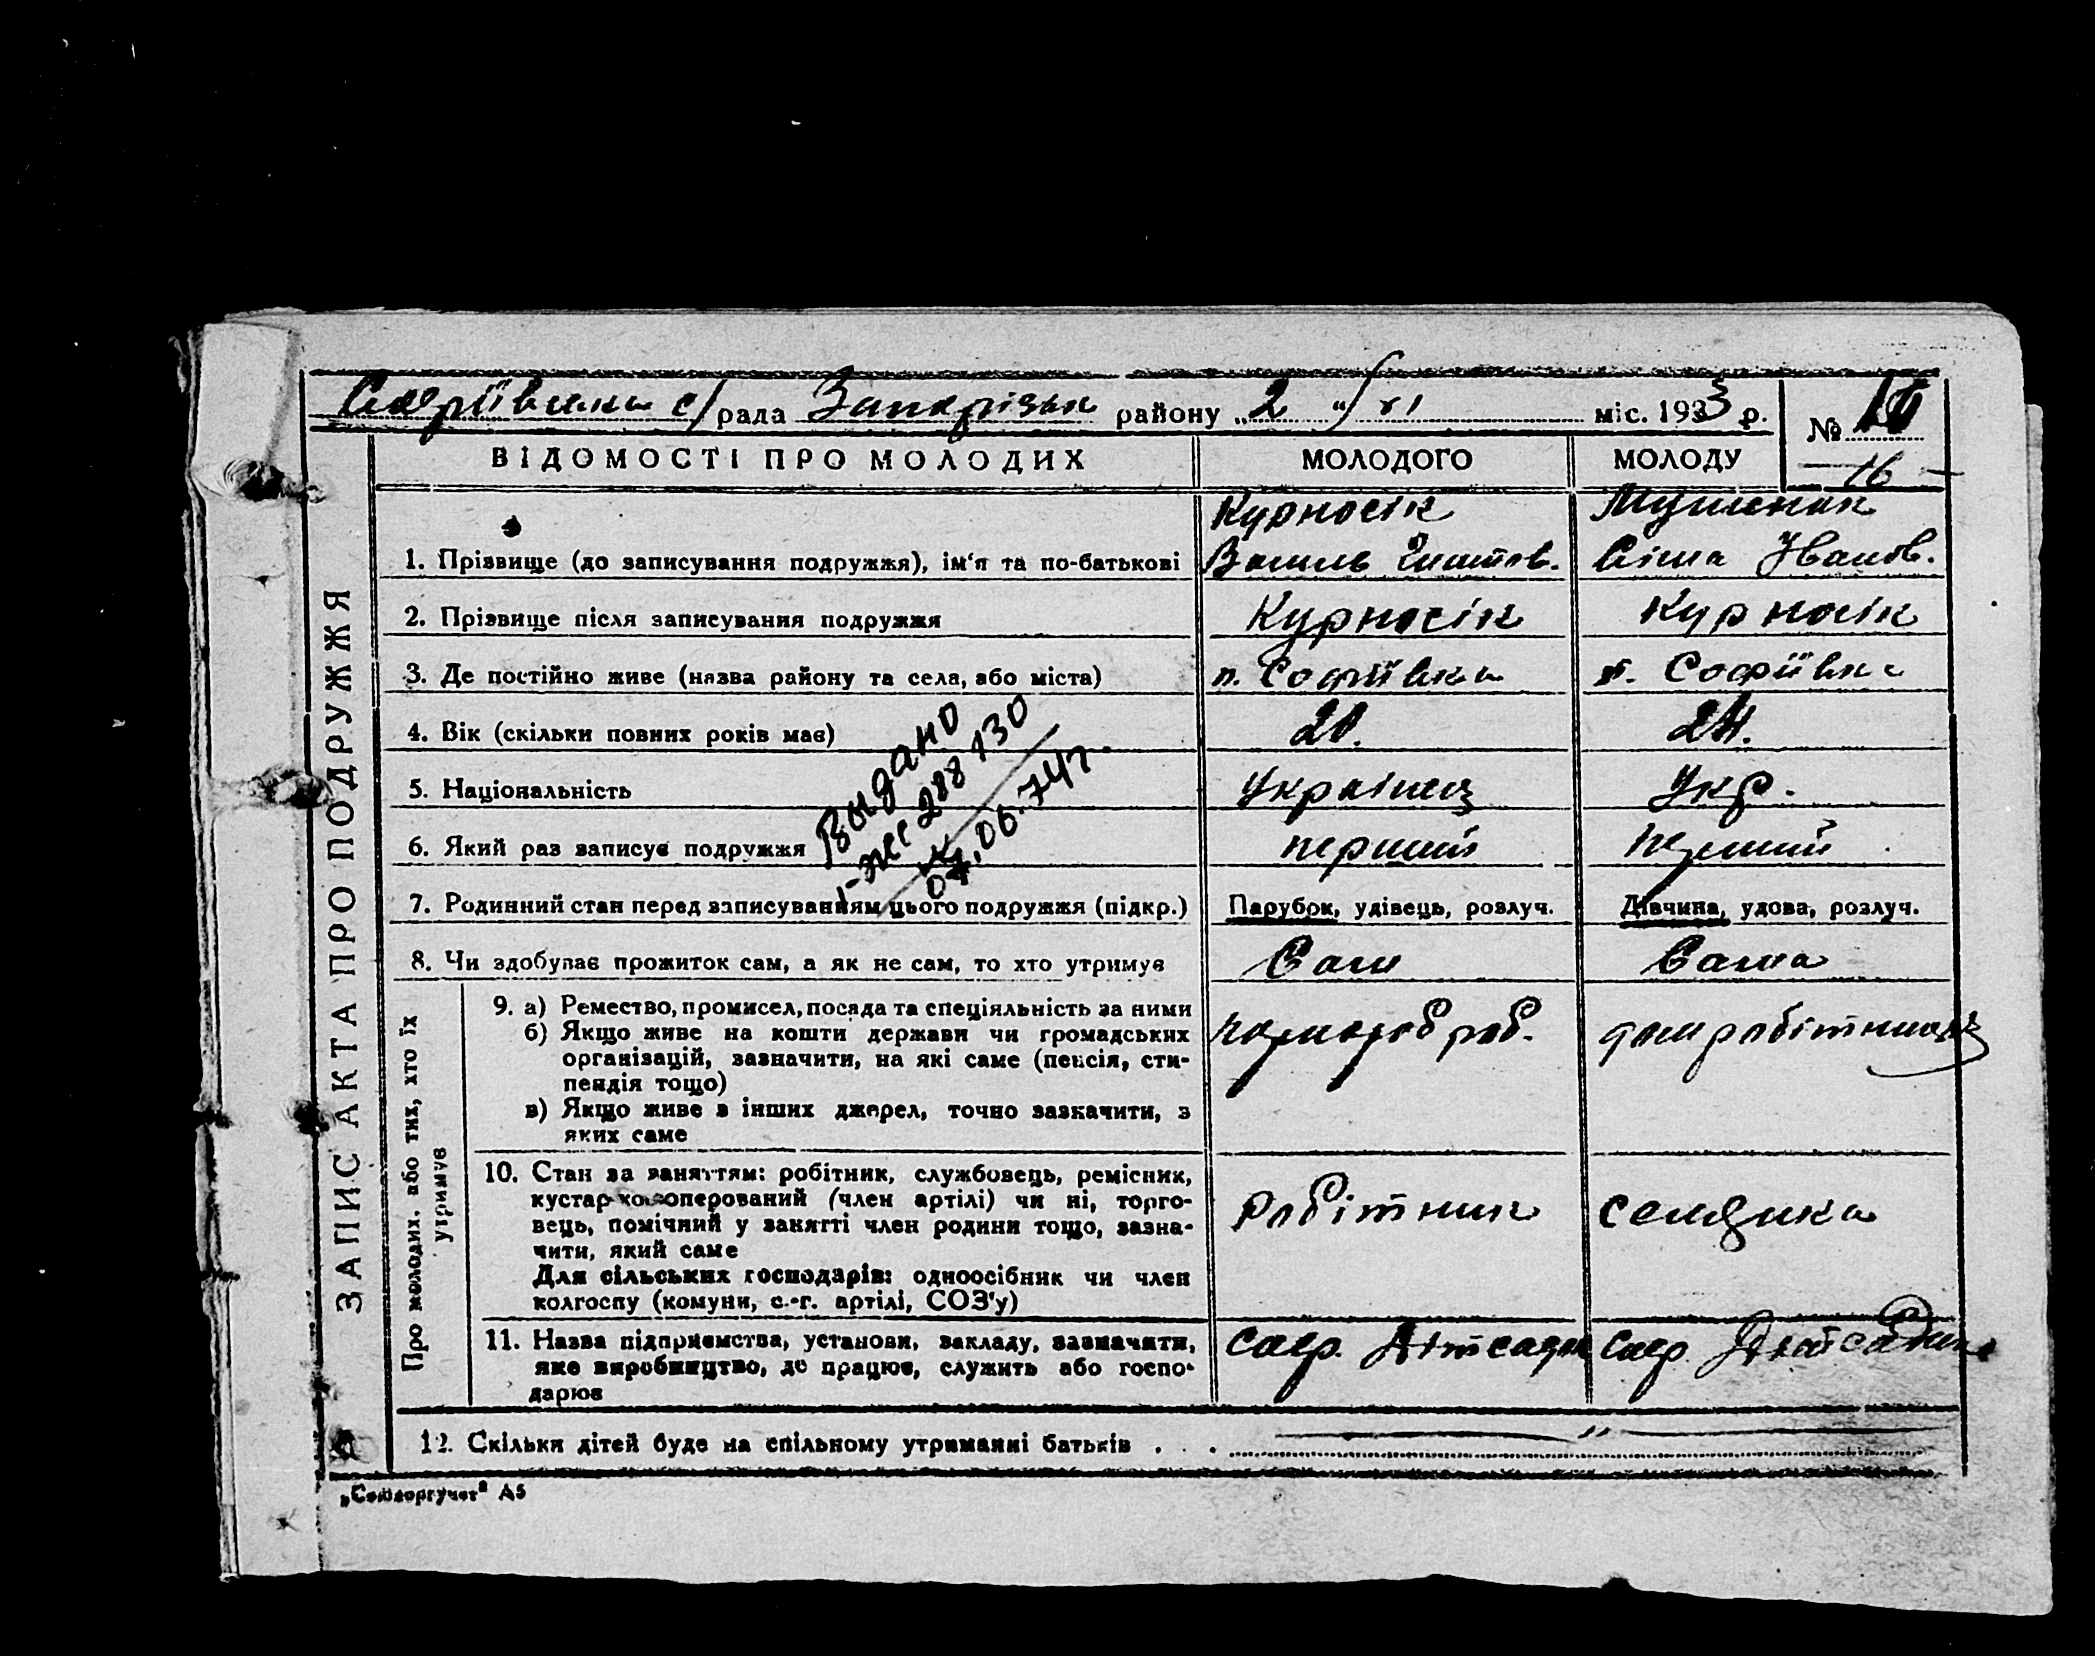 с/рада Запорізьк району „2“ XI міс. 1933 р.
№ 16
16
ЗАПИС АКТА ПРО ПОДРУЖЖЯ
ВІДОМОСТІ ПРО МОЛОДИХ МОЛОДОГО МОЛОДУ
Курносік
1. Прізвище (до записування подружжя), ім‘я та по-батькові Василь Іванов.
2. Прізвище після записування подружжя Курносік Курносік
3. Де постійно живе (назва району та села, або міста) п. Софіївка п. Софіївка
4. Вік (скільки повних років має) 24.
5. Національність Українец Укр.
6. Який раз записує подружжя перший перший
Выдано
288130
06.74г.
7. Родинний стан перед записуванням цього подружжя (підкр.) Парубок, удівець, розлуч. Дівчина, удова, розлуч.
8. Чи здобуває прожиток сам, а як не сам, то хто утримує Сам Сама
Про молодих, або тих, хто їх утримує
9. а) Ремество, промисел, посада та спеціяльність за ними
б) Якщо живе на кошти держави чи громадських
організацій, зазначити, на які саме (пенсія, сти-
пендія тощо)
в) Якщо живе з інших джерел, точно зазначити, з
яких саме
10. Стан за заняттям: робітник, службовець, ремісник,
кустар-кооперований (член артілі) чи ні, торго-
вець, помічний у занятті член родини тощо, зазна-
чити, який саме
Робітник селянка
Для сільських господарів: одноосібник чи член
колгоспу (комуни, с.-г. артілі, СОЗ'у)
11. Назва підприємства, установи, закладу, зазначити,
яке виробництво, де працює, служить або госпо-
дарює
12. Скільки дітей буде на спільному утриманні батьків . . .
„Союзоргучет“ А5